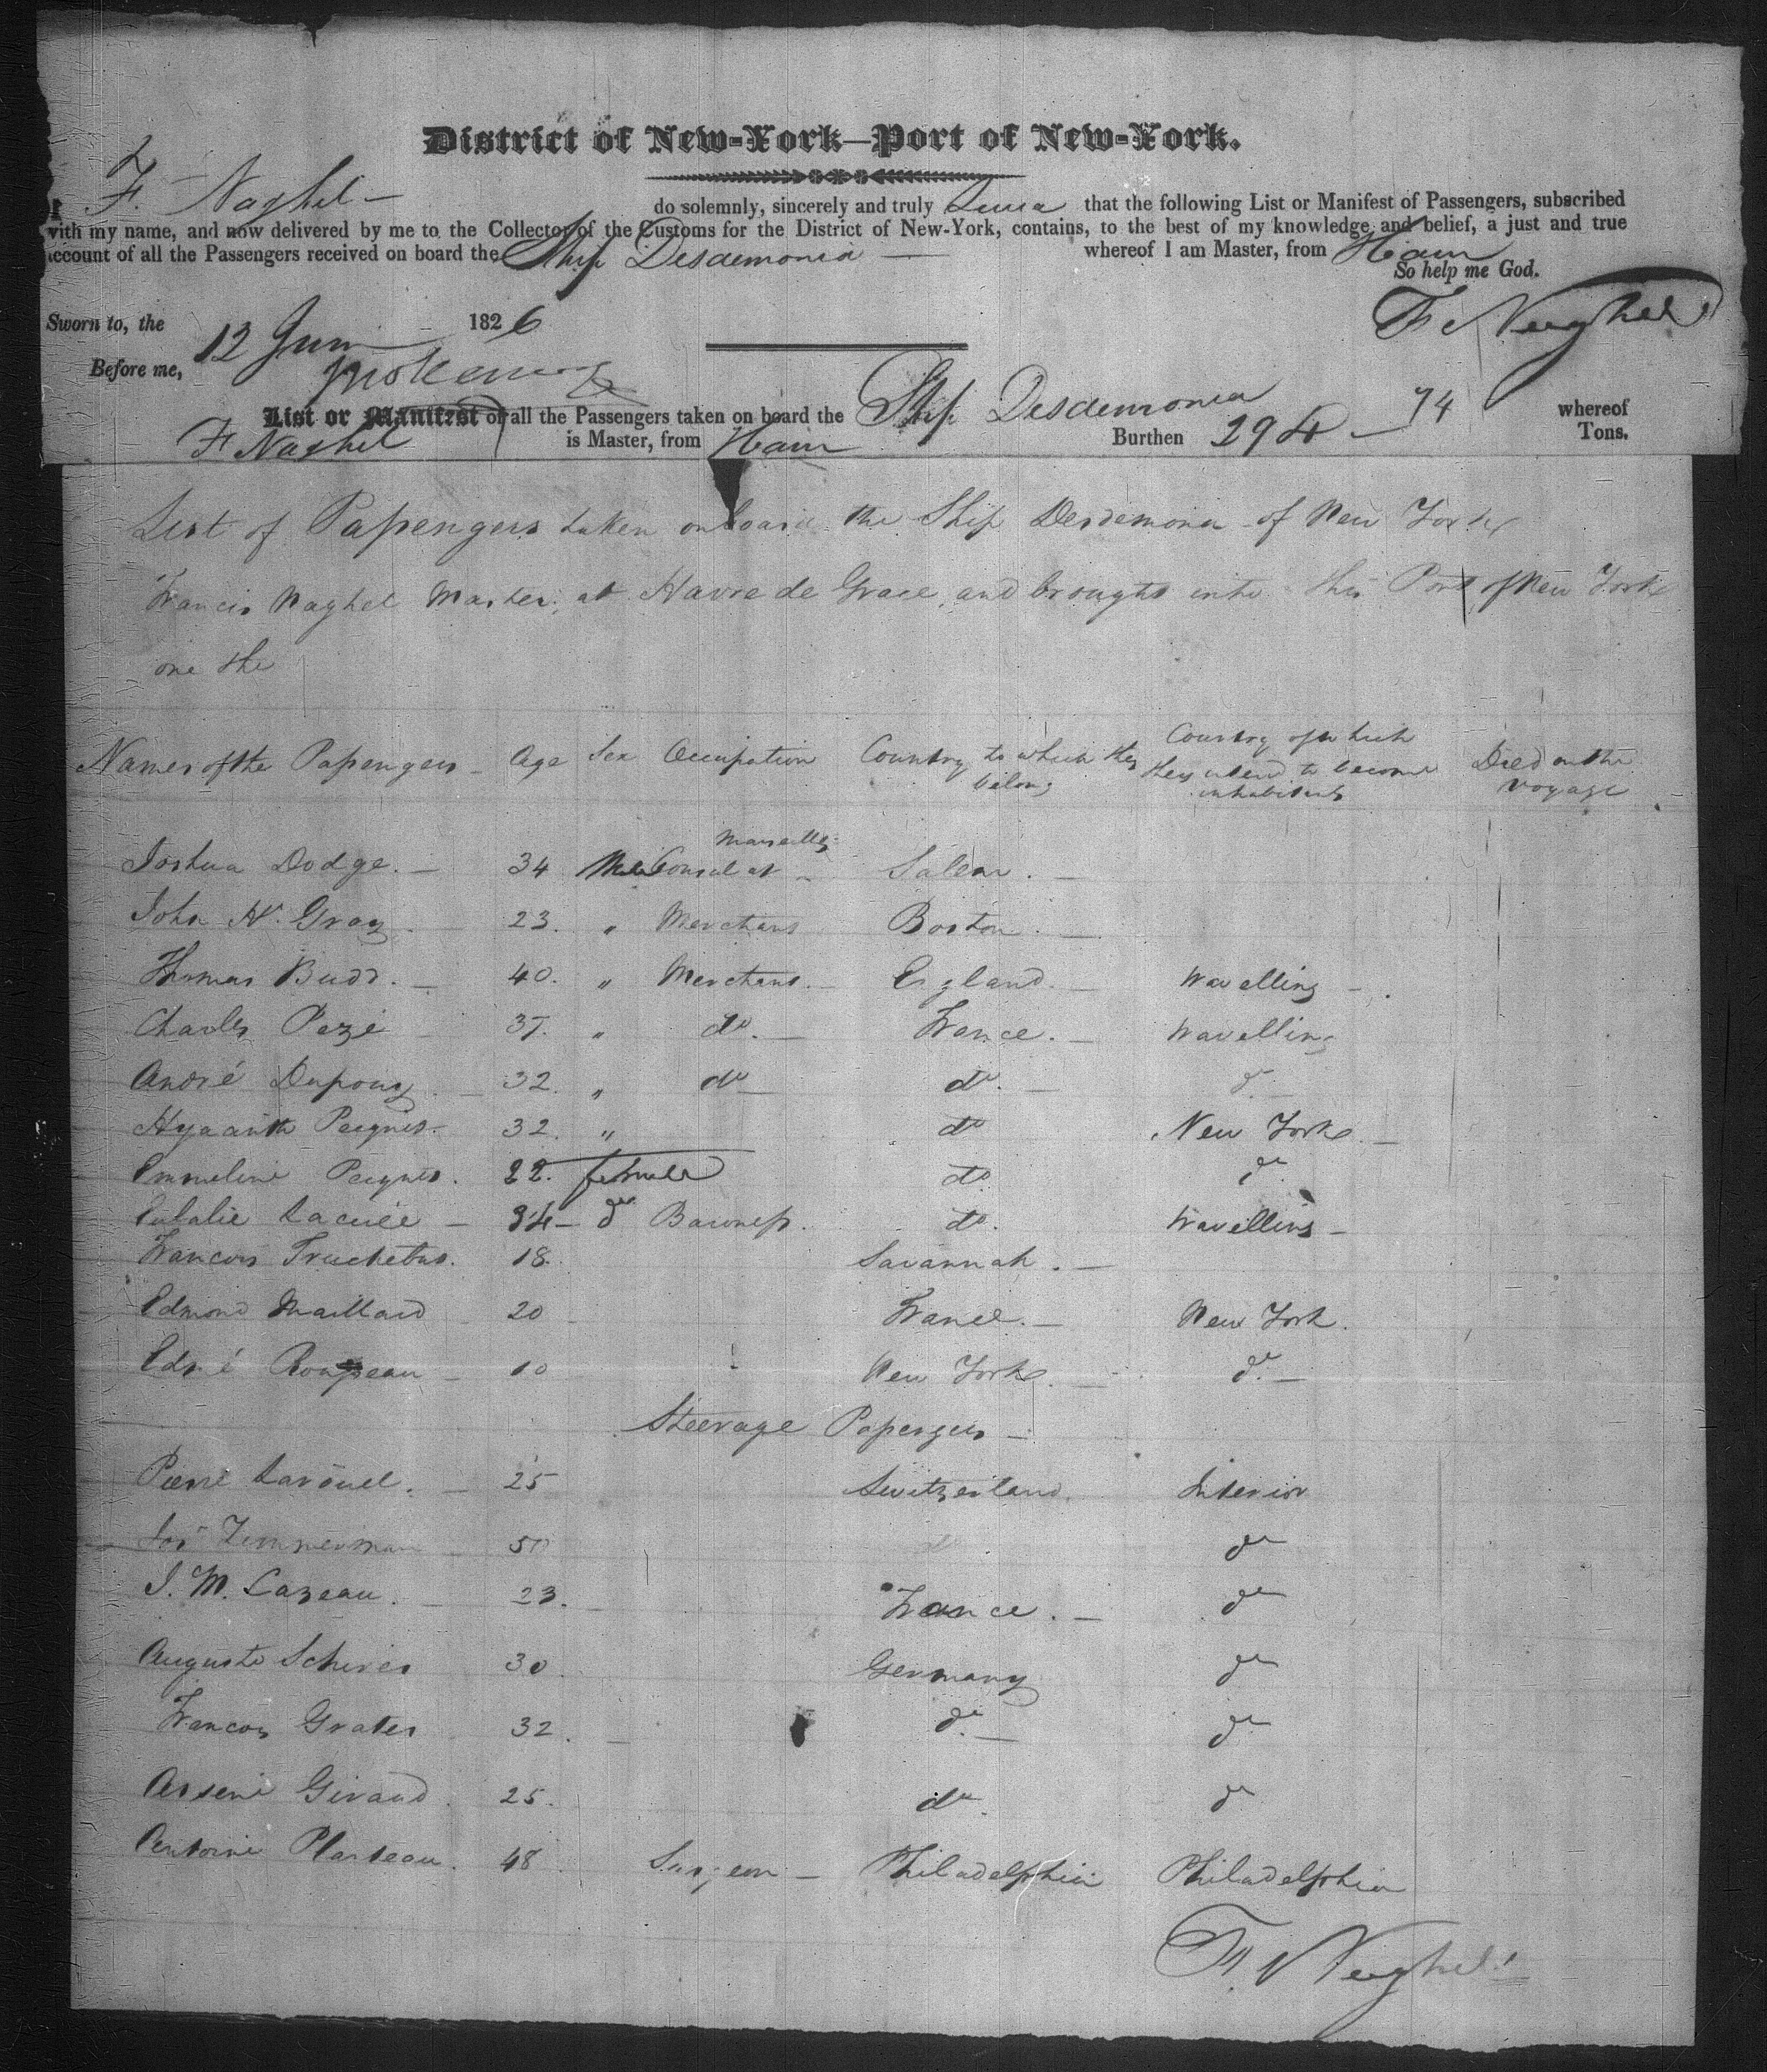 District of New-York—Port of New-York.
F. Naghel — do solemnly, sincerely and truly that the following List or Manifest of Passengers, subscribed
with my name, and now delivered by me to the Collector of the Customs for the District of New-York, contains, to the best of my knowledge and belief, a just and true
account of all the Passengers received on board the Ship Desdemona — whereof I am Master, from
So help me God.
F. Naghel
Sworn to, the 12 182 6
Before me,
List or Manifest of all the Passengers taken on board the Ship Desdemona whereof
F Naghel is Master, from Burthen 294 — 74 Tons.
List of Passengers taken onboard the Ship Desdemona of New York
Francis Naghel Master, at Havre de Grace, and brought into this Port of New York
one the
Names of the Passengers — Age Sex Occupation Country to which they belong Country of which they intend to become inhabitants Died on the voyage
Joshua Dodge. — 34 Male Consul at Marseilles — Salem. —
John H. Gray. 23. " Merchant Boston. —
Thomas Budd. — 40. " Merchant. — England. — travelling —.
Charles Pezé 37. " do. — France. — travelling
André Dupouy. — 32. " do — do. — do
Hyacinth Peignes. 32. " do New York. —
Emmeline Peignes. 22. female do do
Eulalie Lacuée — 34 — do Baroness. do. travelling —
Francois Truchetus. 18. Savannah. —
Edmond Maillard 20 France. — New York.
Edmé Rousseau — 10 New York. — do. —
Steerage Passengers —
Pierre — 25 Switzerland. Interior
Jos Zimmerman — 50 do
J. M. Cazeau. — 23. — France. — do
Auguste 30 Germany do
Francois Grates 32. — do. — do
Arsene Giraud. 25. do. do
Antoine Planteau. 48 Surgeon — Philadelphia Philadelphia
F. Naghel